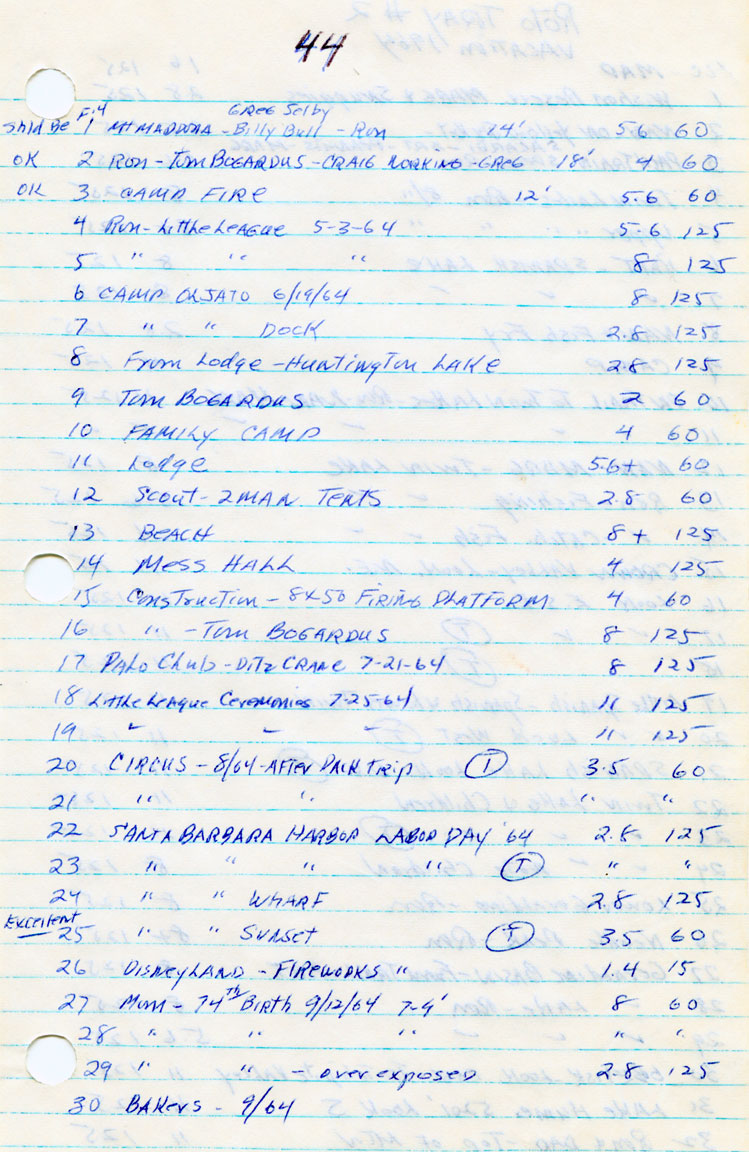 44
Greg Selby
Shld Be F:4 1 Mt MADDONA - Billy Bull - Ron 24' 5.6 60
OK 2 Ron - Tom BOGARDUS - CRAIG - GREG 18' 4 60
OK 3 CAMP FIRE 12' 5.6 60
4 Ron - Little League 5-3-64 5.6 125
5 " " " 8 125
6 CAMP OLJATO 6/19/64 8 125
7 " " DOCK 2.8 125
8 From Lodge - Huntington LAKE 2.8 125
9 Tom BOGARDUS 2 60
10 FAMILY CAMP 4 60
11 Lodge 5.6+ 60
12 Scout - 2 MAN TENTS 2.8 60
13 BEACH 8+ 125
14 MESS HALL 4 125
15 Construction - 8x50 FIRING PLATFORM 4 60
16 " - Tom BOGARDUS 8 125
17 PALO Club - Ditz CRANE 7-21-64 8 125
18 Little League Ceremonies 7-25-64 11 125
19 " " " 11 125
20 CIRCUS - 8/64 - AFTER PACK Trip T 3.5 60
21 " " " "
22 SANTA BARBARA HARBOR LABOR DAY '64 2.8 125
23 " " " " T " "
24 " " WHARF 2.8 125
Excellent 25 " " SUNSET T 3.5 60
26 DISNEYLAND - FIREWORKS " 1.4 15
27 Mom - 74th Birth 9/12/64 7-9' 8 60
28 " " " " "
29 " " - over exposed 2.8 125
30 BAKERS - 9/64